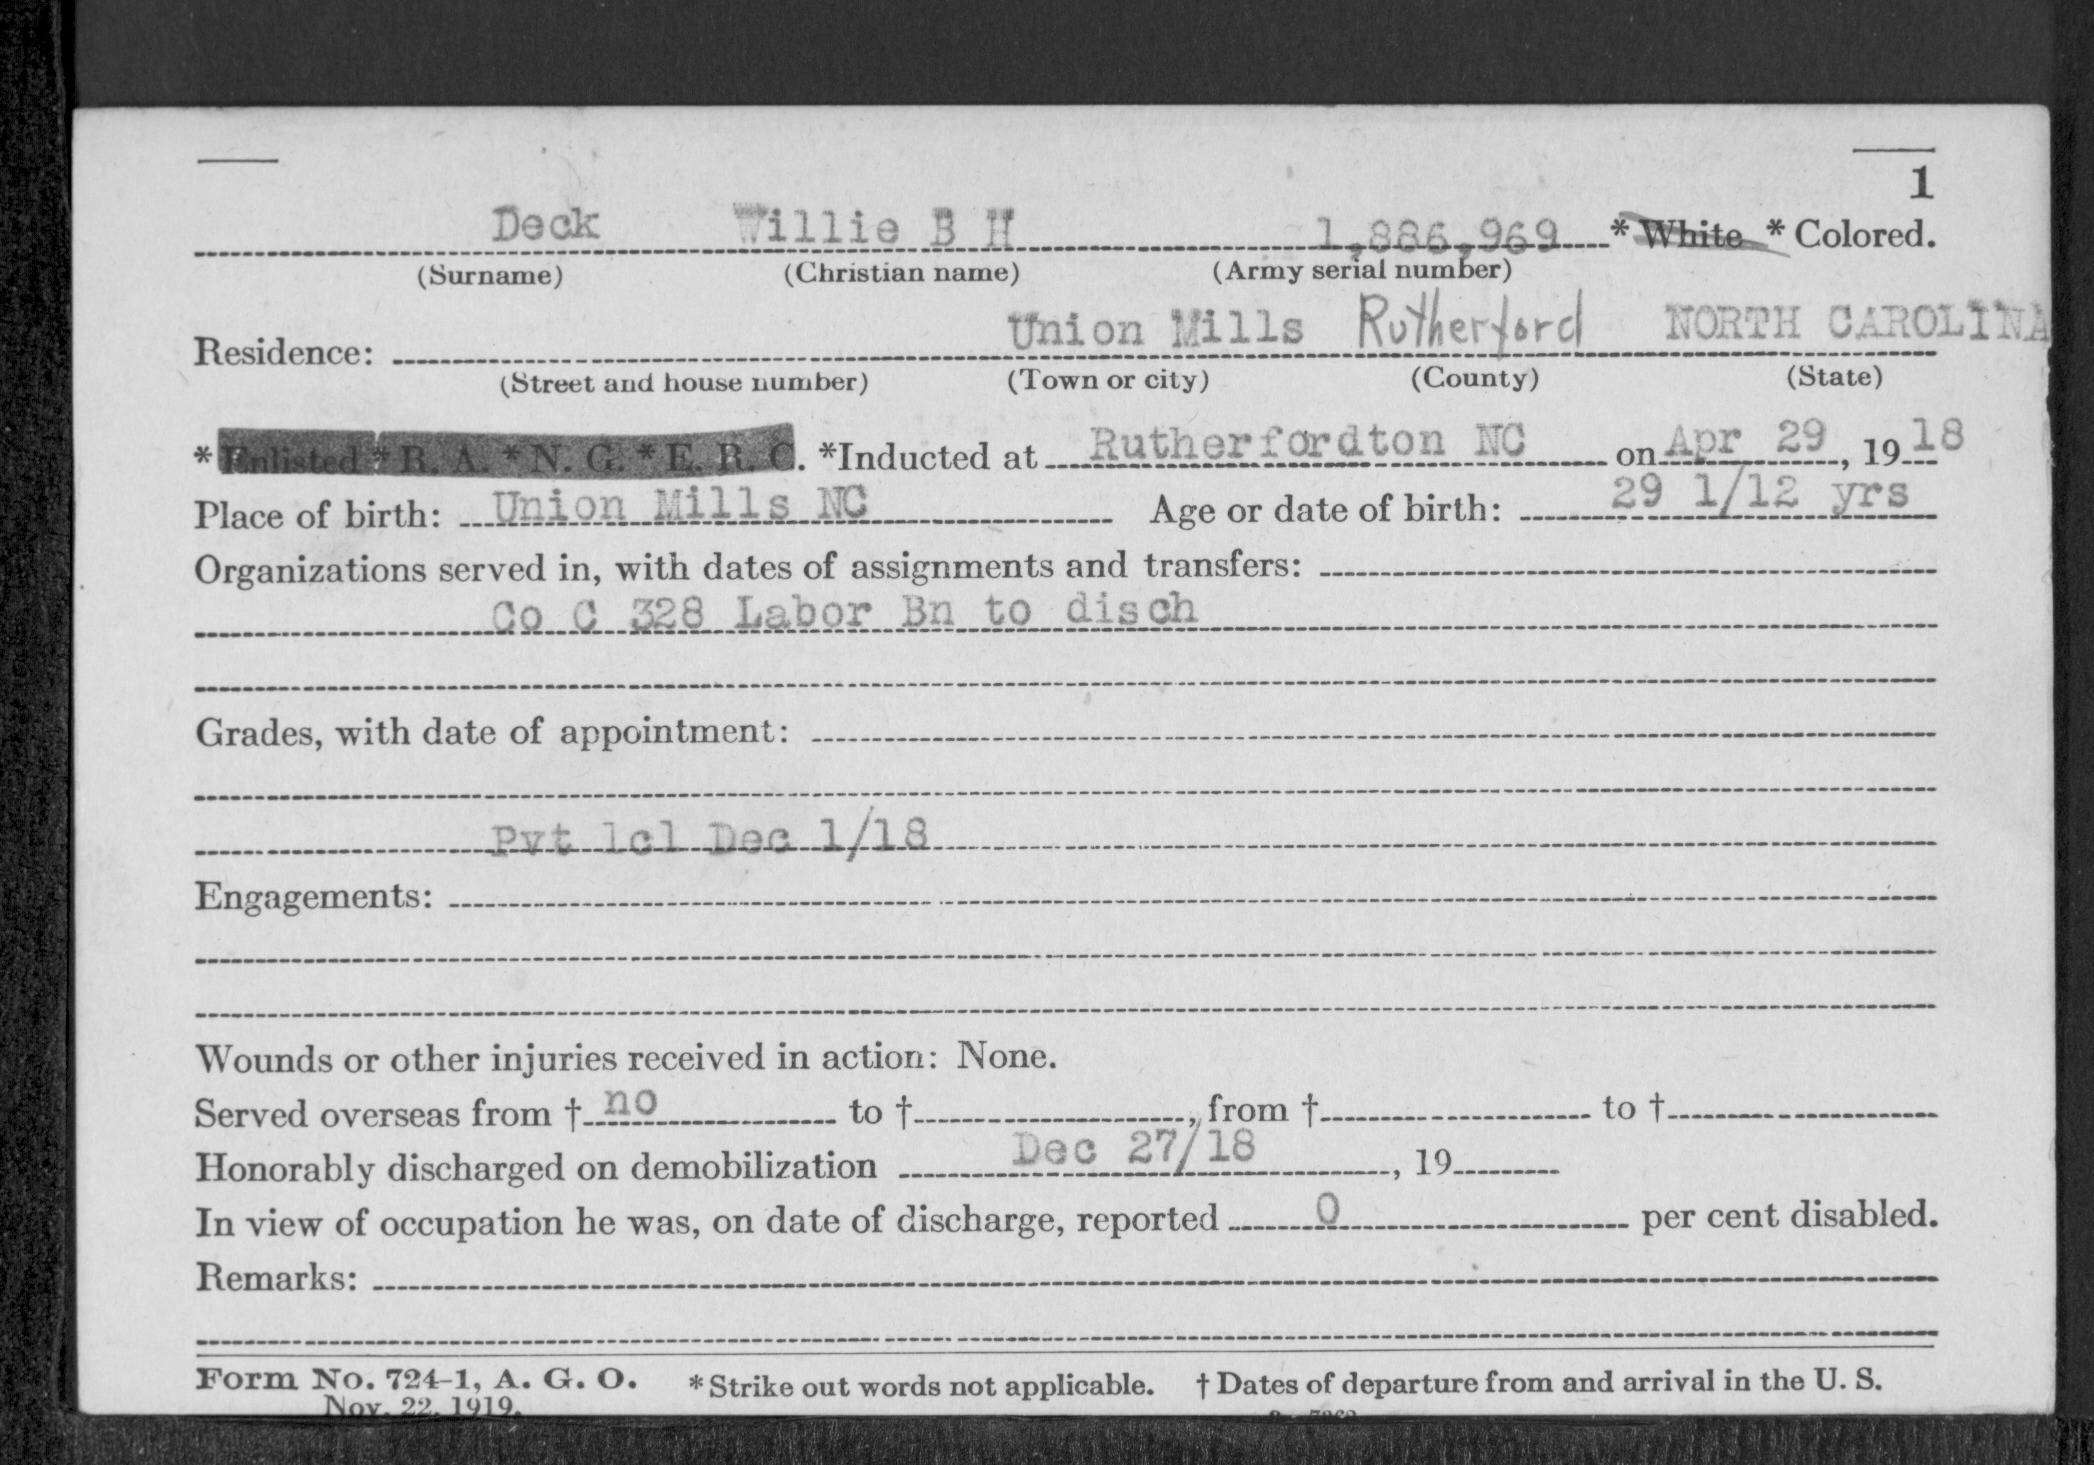 1
Deck Willie B H 1,886,969 * White * Colored.
(Surname) (Christian name) (Army serial number)
Residence: Union Mills Rutherford NORTH CAROLINA
(Street and house number) (Town or city) (County) (State)
* Enlisted * R. A. * N. G. * E. R. C. *Inducted at Rutherfordton NC on Apr 29, 1918
Place of birth: Union Mills NC Age or date of birth: 29 1/12 yrs
Organizations served in, with dates of assignments and transfers:
Co C 328 Labor Bn to disch
Grades, with date of appointment:
Pvt 1cl Dec 1/18
Engagements:
Wounds or other injuries received in action: None.
Served overseas from † no to †, from † to †
Honorably discharged on demobilization Dec 27/18, 19
In view of occupation he was, on date of discharge, reported 0 per cent disabled.
Remarks:
Form No. 724-1, A. G. O. *Strike out words not applicable. † Dates of departure from and arrival in the U. S.
Nov. 22, 1919.